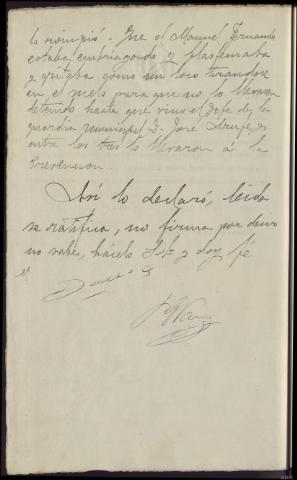 lo rompió. Que el Manuel Fernando
estaba embriagado y blasfemaba
y gritaba como un loco tirandose
en el suelo para que no lo llevaran
detenido hasta que vino el gefe de la
guardia municipal D. José y
entre los tres lo llevaron á la
Prevencion.
Asi lo declaró, leida
se ratifica, no firma por decir
no sabe, hácelo S.Sª y doy fé